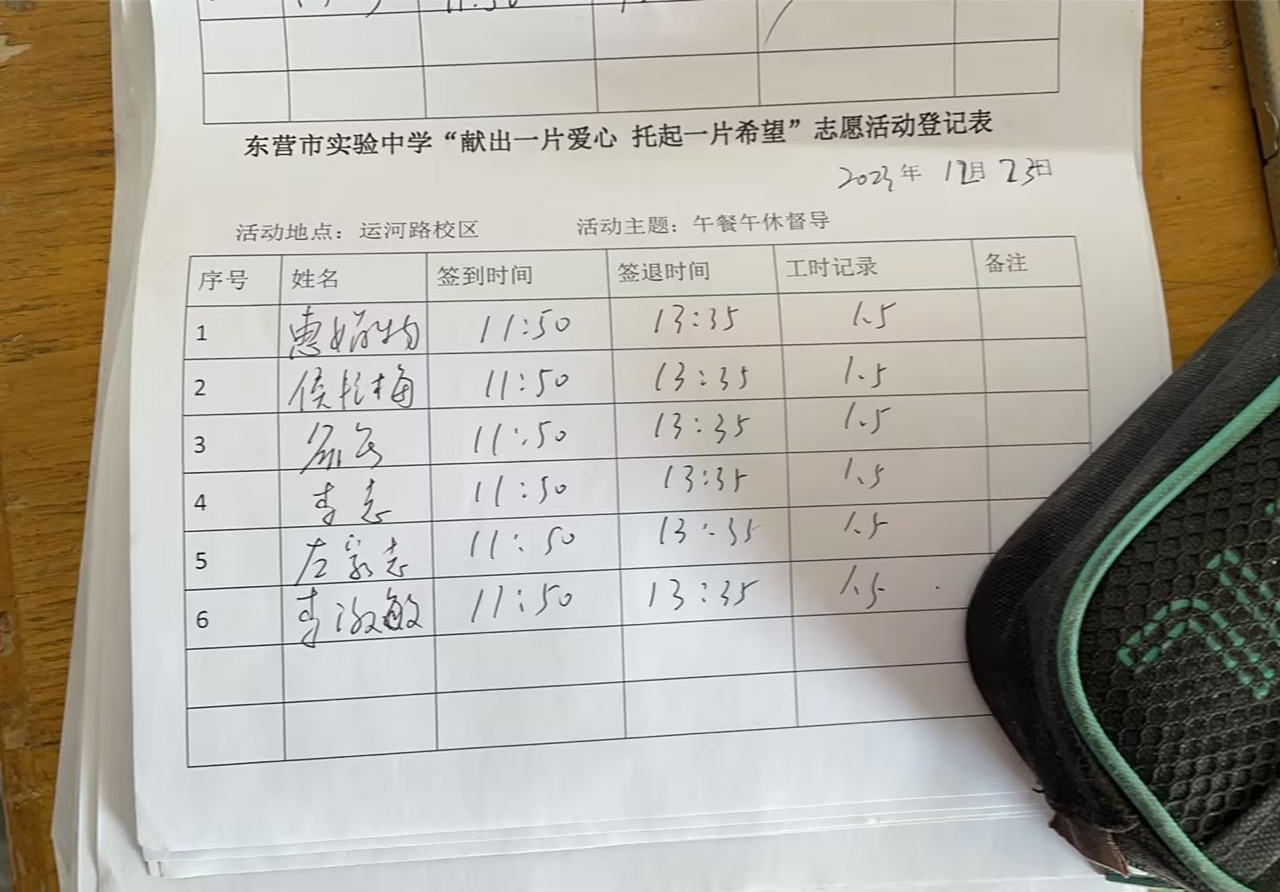 11:30
东营市实验中学“献出一片爱心 托起一片希望”志愿活动登记表
2023年 12月 23日
活动地点：运河路校区 活动主题：午餐午休督导
序号 姓名 签到时间 签退时间 工时记录 备注
1 11:50 13:35 1.5
2 侯 梅 11:50 13:35 1.5
3 11:50 13:35 1.5
4 李志 11:50 13:35 1.5
5 左 志 11:50 13:35 1.5
6 李淑敏 11:50 13:35 1.5